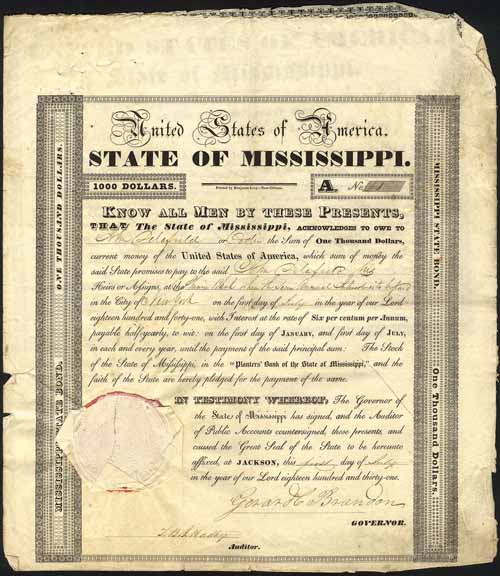 United States of America.
STATE OF MISSISSIPPI.
1000 DOLLARS.
Printed by Benjamin Levy, New-Orleans.
A. No.
KNOW ALL MEN BY THESE PRESENTS,
THAT The State of Mississippi, ACKNOWLEDGES TO OWE TO
John Delafield or Order the Sum of One Thousand Dollars,
current money of the United States of America, which sum of money the
said State promises to pay to the said John Delafield his
Heirs or Assigns, at the
in the City of New York on the first day of July in the year of our Lord
eighteen hundred and forty-one, with Interest at the rate of Six per centum per Annum,
payable half-yearly, to wit: on the first day of JANUARY, and first day of JULY,
in each and every year, until the payment of the said principal sum: The Stock
of the State of Mississippi, in the "Planters' Bank of the State of Mississippi," and the
faith of the State are hereby pledged for the payment of the same.
IN TESTIMONY WHEREOF, The Governor of
the State of Mississippi has signed, and the Auditor
of Public Accounts countersigned, these presents, and
caused the Great Seal of the State to be hereunto
affixed, at JACKSON, this first day of July
in the year of our Lord eighteen hundred and thirty-one.
Gerard C Brandon
GOVERNOR.
Auditor.
ONE THOUSAND DOLLARS.
MISSISSIPPI STATE BOND.
MISSISSIPPI STATE BOND.
One Thousand Dollars.